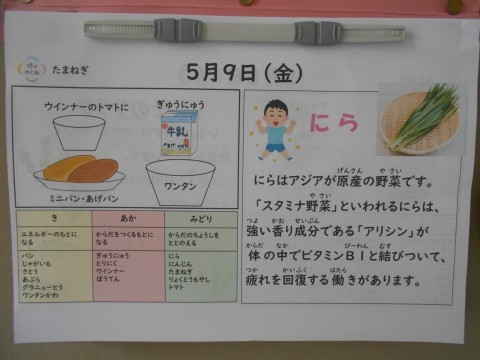 たまねぎ
5月9日(金)
ウインナーのトマトに
ぎゅうにゅう
牛乳
ミニパン・あげパン
ワンタン
き
あか
みどり
エネルギーのもとに
なる
からだをつくるもとに
なる
からだのちょうしを
ととのえる
パン
じゃがいも
さとう
あぶら
グラニューとう
ワンタンかわ
ぎゅうにゅう
とりにく
ウインナー
ぼうてん
にら
にんじん
たまねぎ
りょくとうもやし
トマト
にら
にらはアジアが原産の野菜です。
「スタミナ野菜」といわれるにらは、
強い香り成分である「アリシン」が
体の中でビタミンB1と結びついて、
疲れを回復する働きがあります。